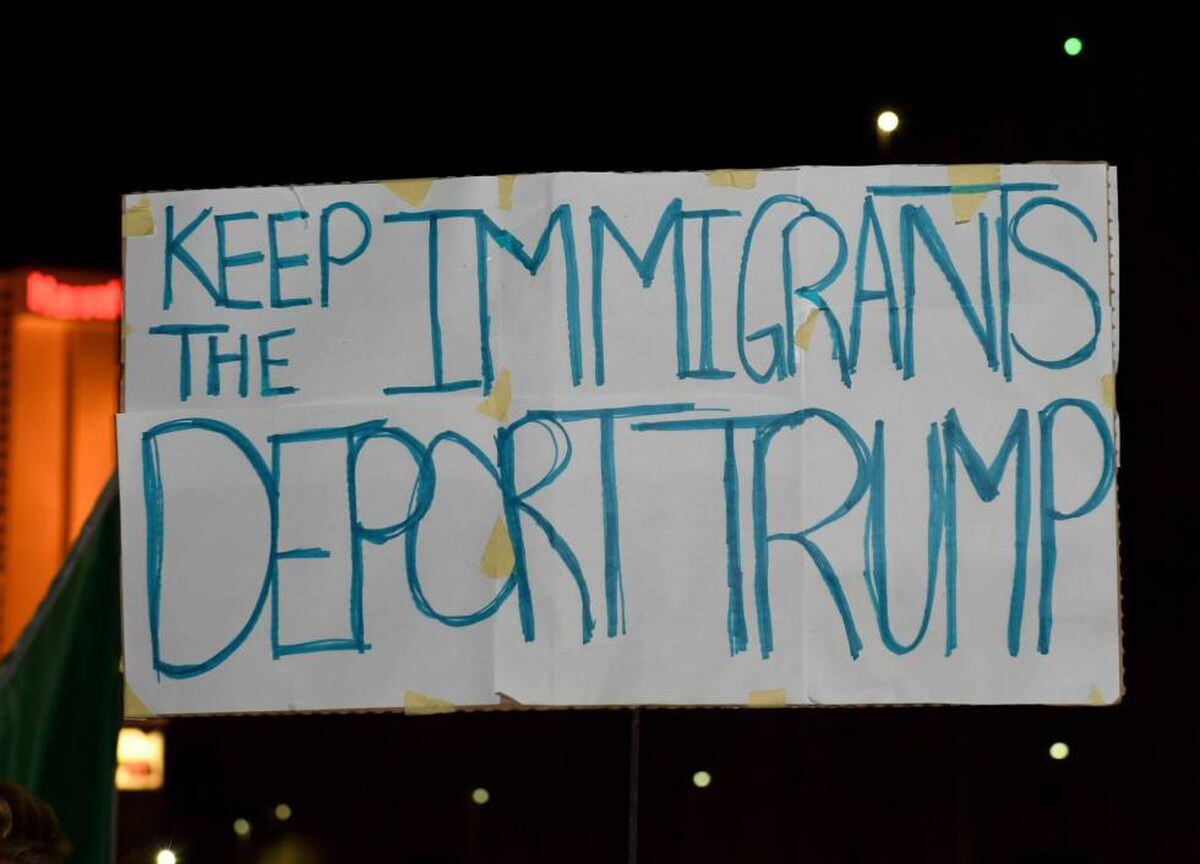 KEEP
THE
IMMIGRANTS
DEPORT TRUMP